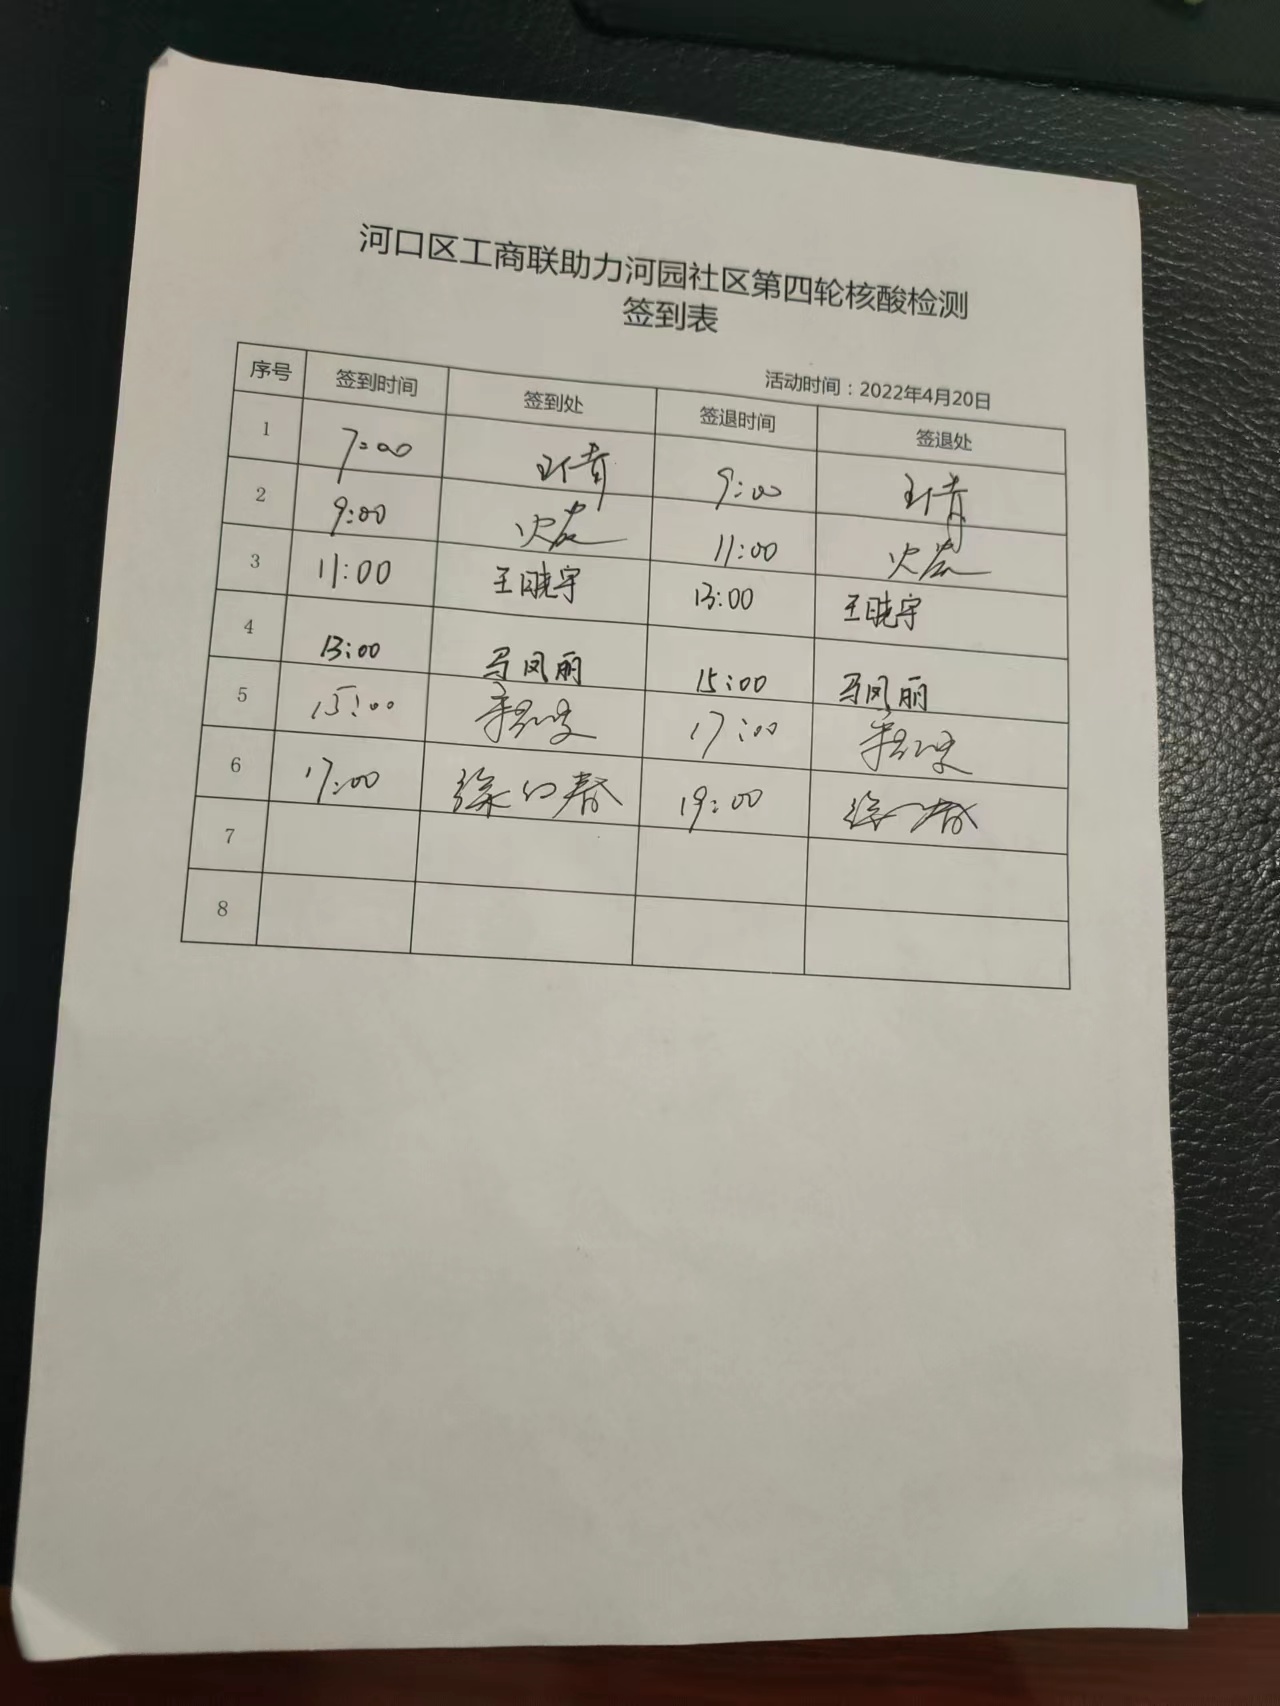 河口区工商联助力河园社区第四轮核酸检测
签到表
活动时间：2022年4月20日
序号 签到时间 签到处 签退时间 签退处
1 7:00 9:00
2 9:00 11:00
3 11:00 王晓宇 13:00 王晓宇
4 13:00 马凤丽 15:00 马凤丽
5 15:00 17:00
6 17:00 19:00
7
8